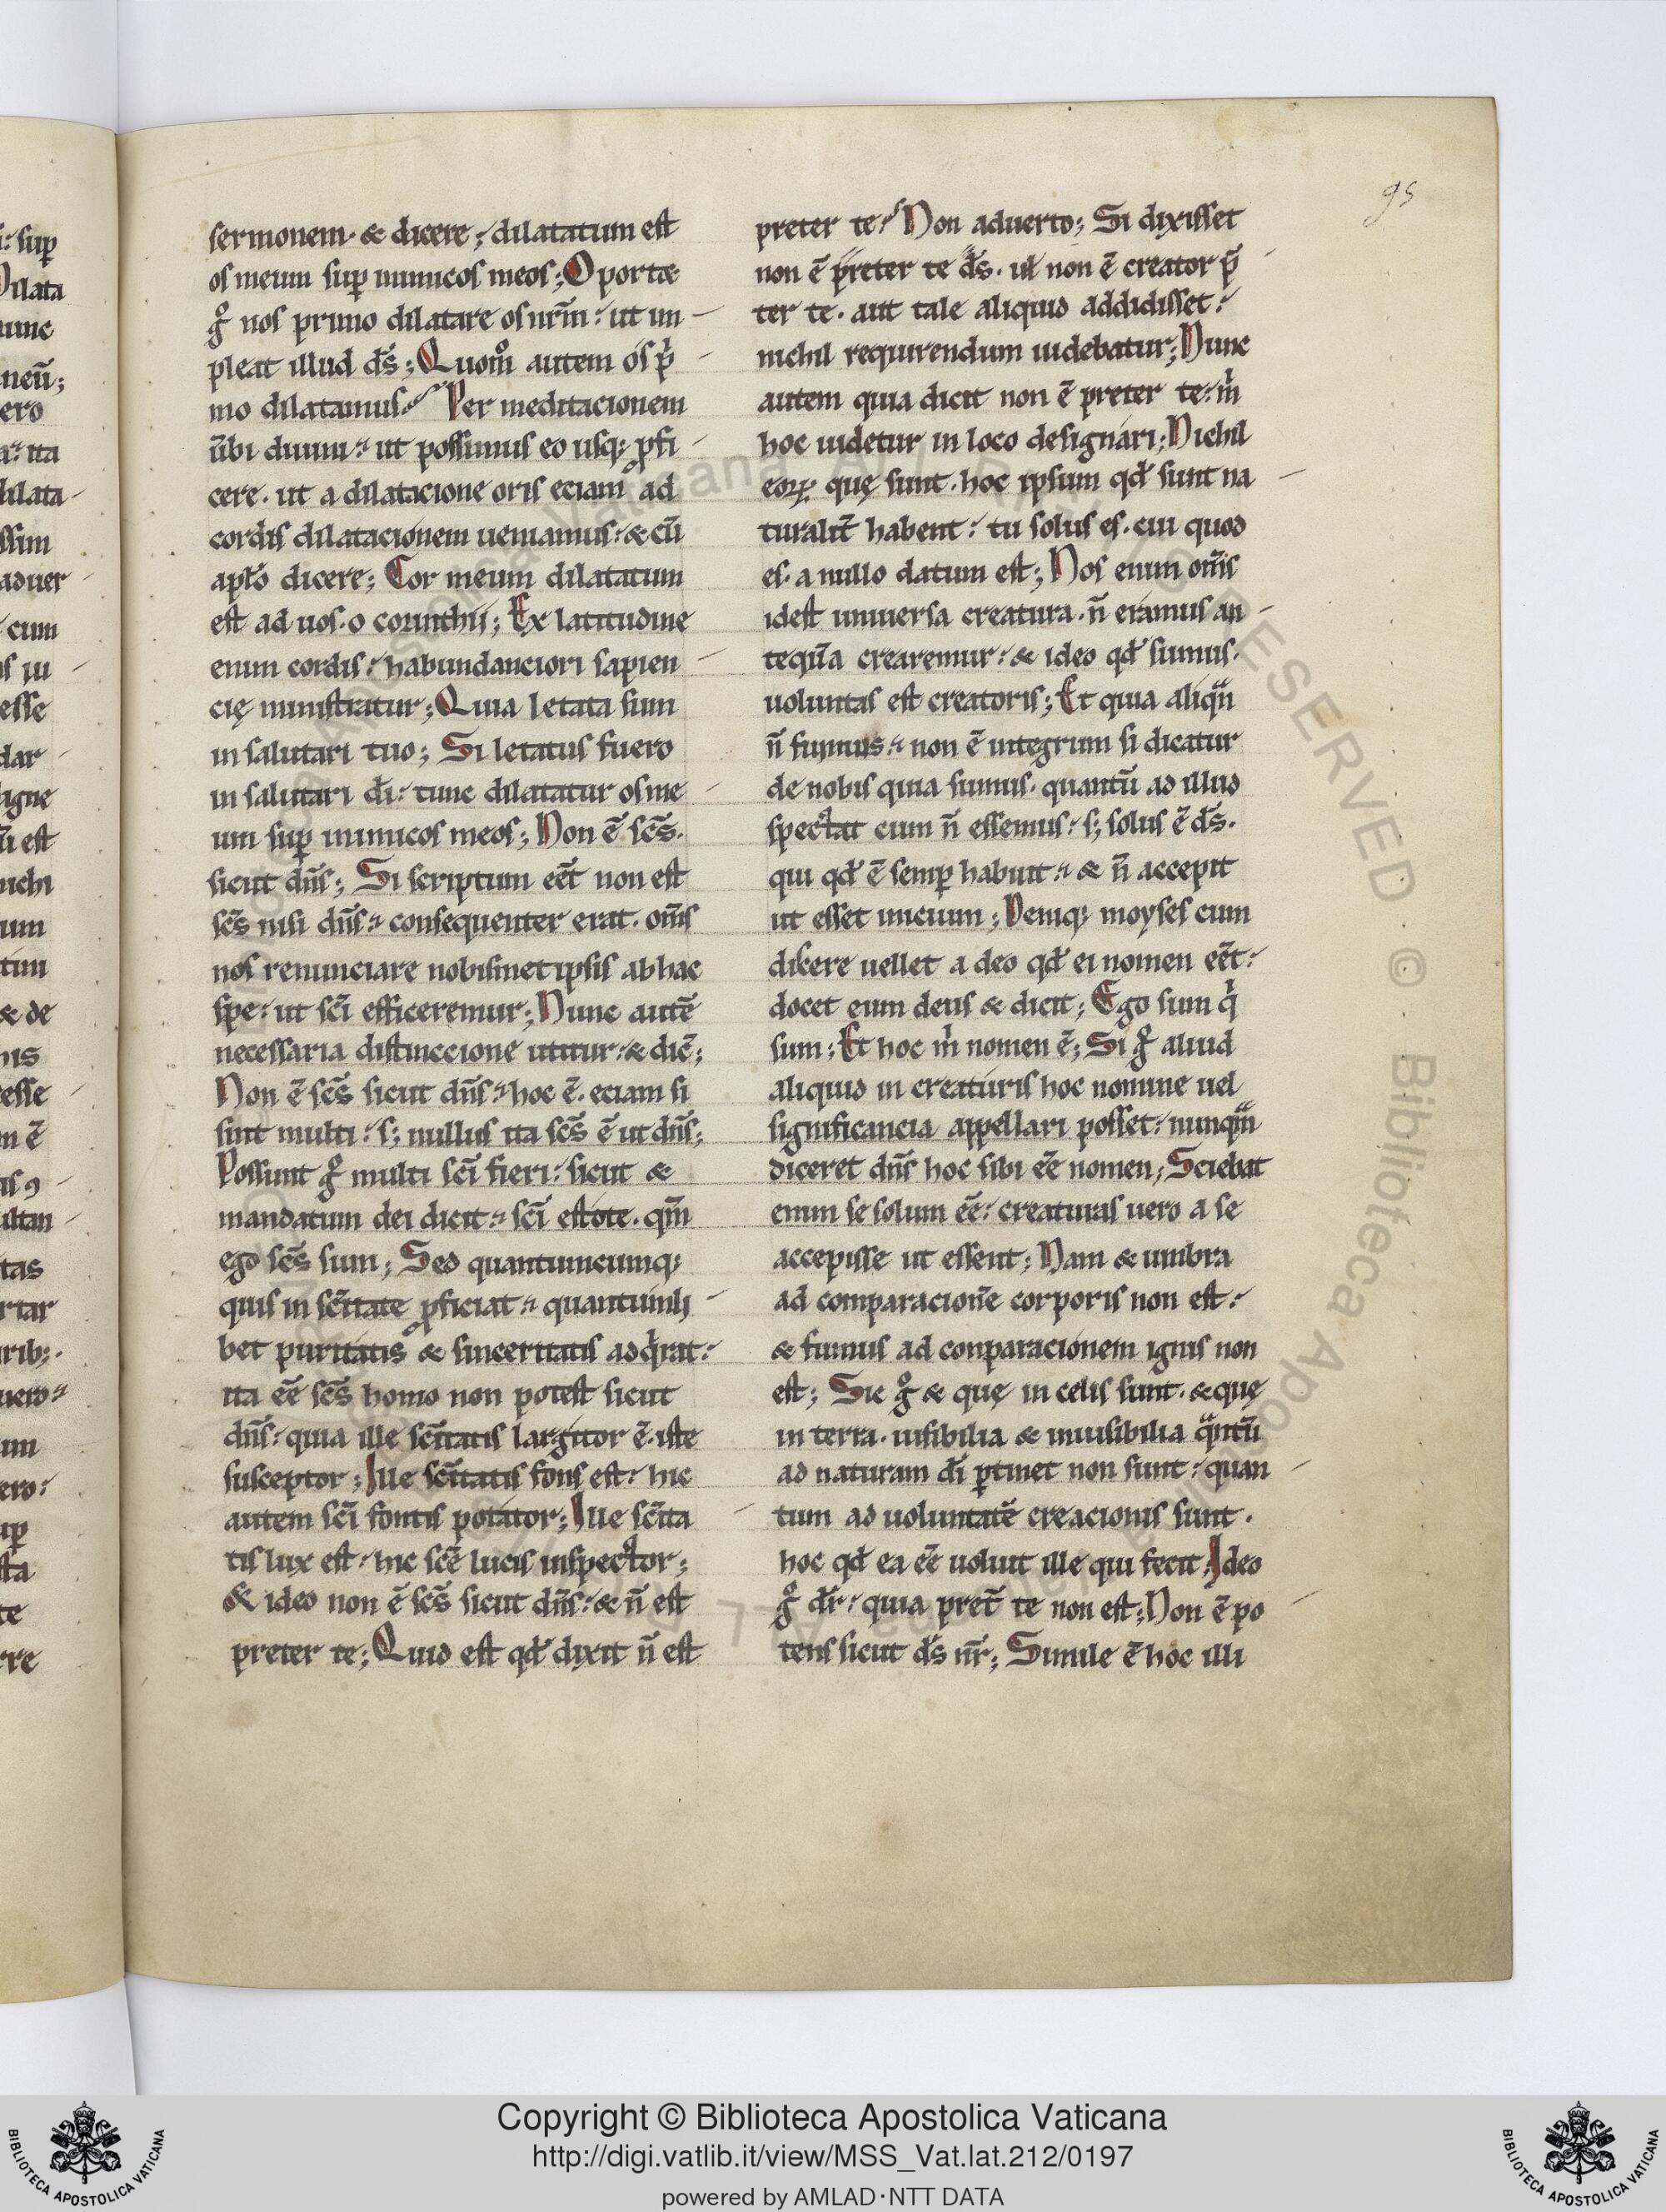 95
sermonem· & dicere; dilatatum est
os meum sup̱ inimicos meos; Oportet
gͦ nos primo dilatare os nr̄m· ut im-
pleat illud dš; Quomͦ autem os pͥ-
mo dilatamus? Per meditacionem
ūbi diuini· ut possimus eo usq; ꝓfi-
cere· ut a dilatacione oris eciam ad
cordis dilatacionem ueniamus· & cū
apɫo dicere; Cor meum dilatatum
est ad uos· o corinthii; Ex latitudine
enim cordis· habundanciori sapien-
cię ministratur; Quia letata sum
in salutari tuo; Si letatus fuero
in salutari dī· tunc dilatatur os me
um sup̱ inimicos meos; Non ē scs̄·
sicut dn̄s; Si scriptum eēt non est
scs̄ nisi dn̄s· consequenter erat· om̄s
nos renunciare nobismet ipsis ab hac
spe· ut scī efficeremur; Nunc autē
necessaria distinccione utitur· & dic̄;
Non ē scs̄ sicut dn̄s· hoc ē· eciam si
sint multi· s; nullus ita scs̄ ē ut dn̄s;
Possunt gͦ multi scī fieri· sicut &
mandatum dei dicit· scī estote· qm̄
ego scs̄ sum; Sed quantumcumq;
quis in scītate ꝓficiat· quantumli-
bet puritatis & sinceritatis adqͥrat·
ita eē scs̄ homo non potest sicut
dn̄s· quia ille scītatis largitor ē· iste
susceptor; Ille scītatis fons est· hic
autem scī fontis potator; Ille scīta-
tis lux est· hic scē lucis inspector;
& ideo non ē scs̄ sicut dn̄s· & n̄ est
preter te; Quid est qd̄ dixit n̄ est
preter te? Non aduerto; Si dixisset
non ē preter te dš· uɫ non ē creator p̄-
ter te· aut tale aliquid addidisset·
nichil requirendum uidebatur; Nunc
autem quia dicit non ē preter te· mͥ
hoc uidetur in loco designari; Nichil
eoꝝ que̜ sunt· hoc ipsum qd̄ sunt na-
turalit̄ habent· tu solus es· cui quod
es· a nullo datum est; Nos enim om̄is
idest uniuersa creatura· n̄ eramus an-
teqͣ̄a crearemur· & ideo qd̄ sumus·
uoluntas est creatoris; Et quia aliqͣn̄
n̄ fuimus· non ē integrum si dicatur
de nobis quia sumus· quantū ad illud
spectat cum n̄ essemus· s; solus ē dš·
qui qd̄ ē semp̱ habuit· & n̄ accepit
ut esset inicium; Deniq; moyses cum
dicere uellet a deo qd̄ ei nomen eēt·
docet eum deus & dicit; Ego sum qͥ
sum; Et hoc mͥ nomen ē; Si gͦ aliud
aliquid in creaturis hoc nomine uel
significancia appellari posset· nunqͣm
diceret dn̄s hoc sibi eē nomen; Sciebat
enim se solum eē· creaturas uero a se
accepisse ut essent; Nam & umbra
ad comparacionē corporis non est·
& fumus ad conparacionem ignis non
est; Sic gͦ & que̜ in celis sunt· & que̜
in terra· uisibilia & inuisibilia qͣntū
ad naturam dī p̱tinet non sunt· quan-
tum ad uoluntatē creacionis sunt·
hoc qd̄ ea eē uoluit ille qui fecit; Ideo
gͦ dr̄· quia pret̄ te non est; Non ē po-
tens sicut dš nr̄; Simile ē hoc illi
Copyright © Biblioteca Apostolica Vaticana
http://digi.vatlib.it/view/MSS_Vat.lat.212/0197
powered by AMLAD·NTT DATA
BIBLIOTECA APOSTOLICA VATICANA
BIBLIOTECA APOSTOLICA VATICANA